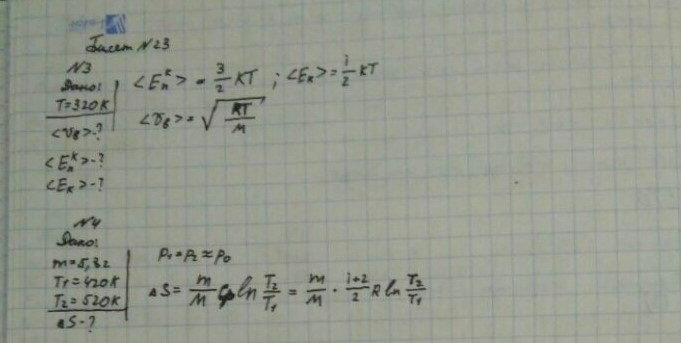 Билет N23
N3
Дано:
T=320K
<υ_в>-?
<E_п^к>-?
<E_к>-?
<E_п^к> = 3/2 KT ; <E_к> = i/2 KT
<υ_в> = √(RT/M)
N4
Дано:
m=5,3г
T1=420K
T2=520K
ΔS-?
P1=P2≈P0
ΔS = m/M Cp ln T2/T1 = m/M · i+2/2 R ln T2/T1